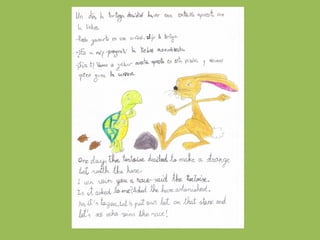 Un día la tortuga decidió hacer una extraña apuesta con
la liebre.
-Puedo ganarte en una carrera-dijo la tortuga.
-¿Es a mí?-preguntó la liebre
-¡Sí a ti! Vamos a poner nuestra apuesta en esta piedra y veamos
quien gana la carrera.
One day, the tortoise decided to make a strange
bet with the hare.
I can win you a race-said the tortoise.
Is it asked to me?Asked the hare astonished.
Yes, it's to you. Let's put our bet on that stone and
let's see who wins the race!